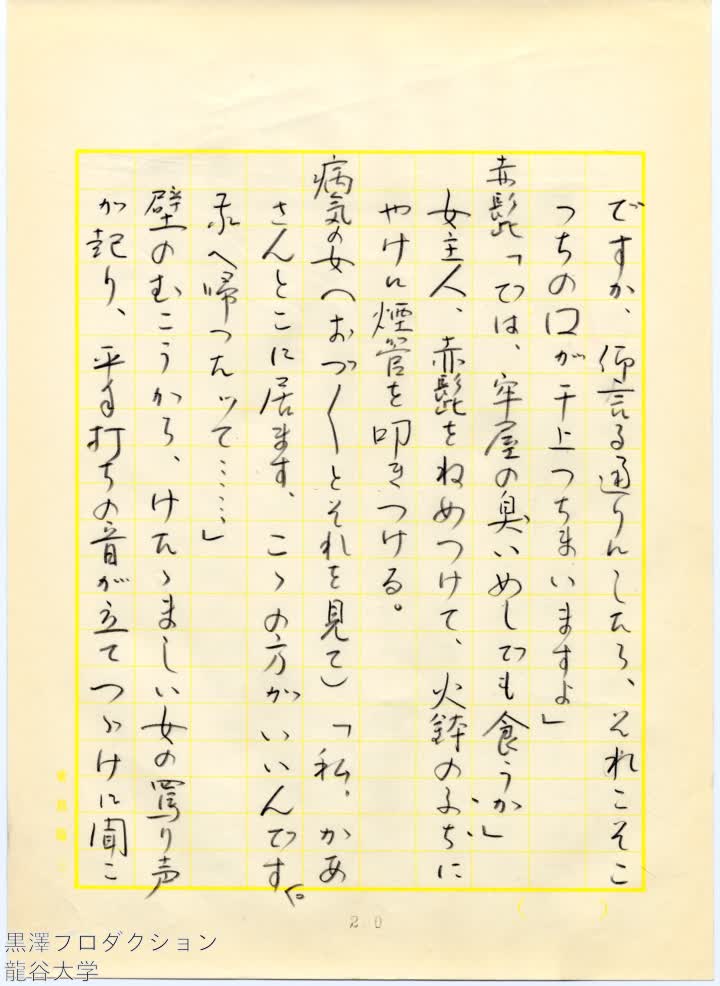 ですか、仰言る通りにしたら、それこそこ
っちの口が干上っちまいますよ」
赤髭「では、牢屋の臭いめしでも食うか」
女主人、赤髭をねめつけて、火鉢のふちに
やけに煙管を叩きつける。
病気の女（おづ〱とそれを見て）「私、かあ
さんとこに居ます、こゝの方がいいんです。
家へ帰ったッて……」
壁のむこうから、けたゝましい女の罵り声
が起り、平手打ちの音が立てつゞけに聞こ
20
黒澤プロダクション
龍谷大学